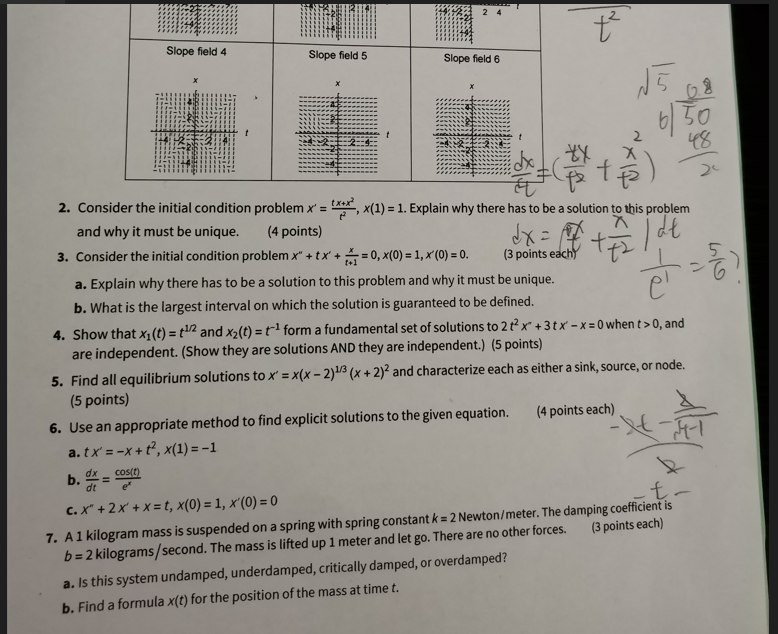 Slope field 4 Slope field 5 Slope field 6
2. Consider the initial condition problem x′ = (t x + x²)/t², x(1) = 1. Explain why there has to be a solution to this problem
and why it must be unique. (4 points)
3. Consider the initial condition problem x″ + t x′ + x/(t+1) = 0, x(0) = 1, x′(0) = 0. (3 points each)
a. Explain why there has to be a solution to this problem and why it must be unique.
b. What is the largest interval on which the solution is guaranteed to be defined.
4. Show that x₁(t) = t^(1/2) and x₂(t) = t⁻¹ form a fundamental set of solutions to 2 t² x″ + 3 t x′ − x = 0 when t > 0, and
are independent. (Show they are solutions AND they are independent.) (5 points)
5. Find all equilibrium solutions to x′ = x(x − 2)^(1/3) (x + 2)² and characterize each as either a sink, source, or node.
(5 points)
6. Use an appropriate method to find explicit solutions to the given equation. (4 points each)
a. t x′ = −x + t², x(1) = −1
b. dx/dt = cos(t)/eˣ
c. x″ + 2 x′ + x = t, x(0) = 1, x′(0) = 0
7. A 1 kilogram mass is suspended on a spring with spring constant k = 2 Newton/meter. The damping coefficient is
b = 2 kilograms/second. The mass is lifted up 1 meter and let go. There are no other forces. (3 points each)
a. Is this system undamped, underdamped, critically damped, or overdamped?
b. Find a formula x(t) for the position of the mass at time t.
t²
√5
6) 50
48
1/e¹ = 5/6?